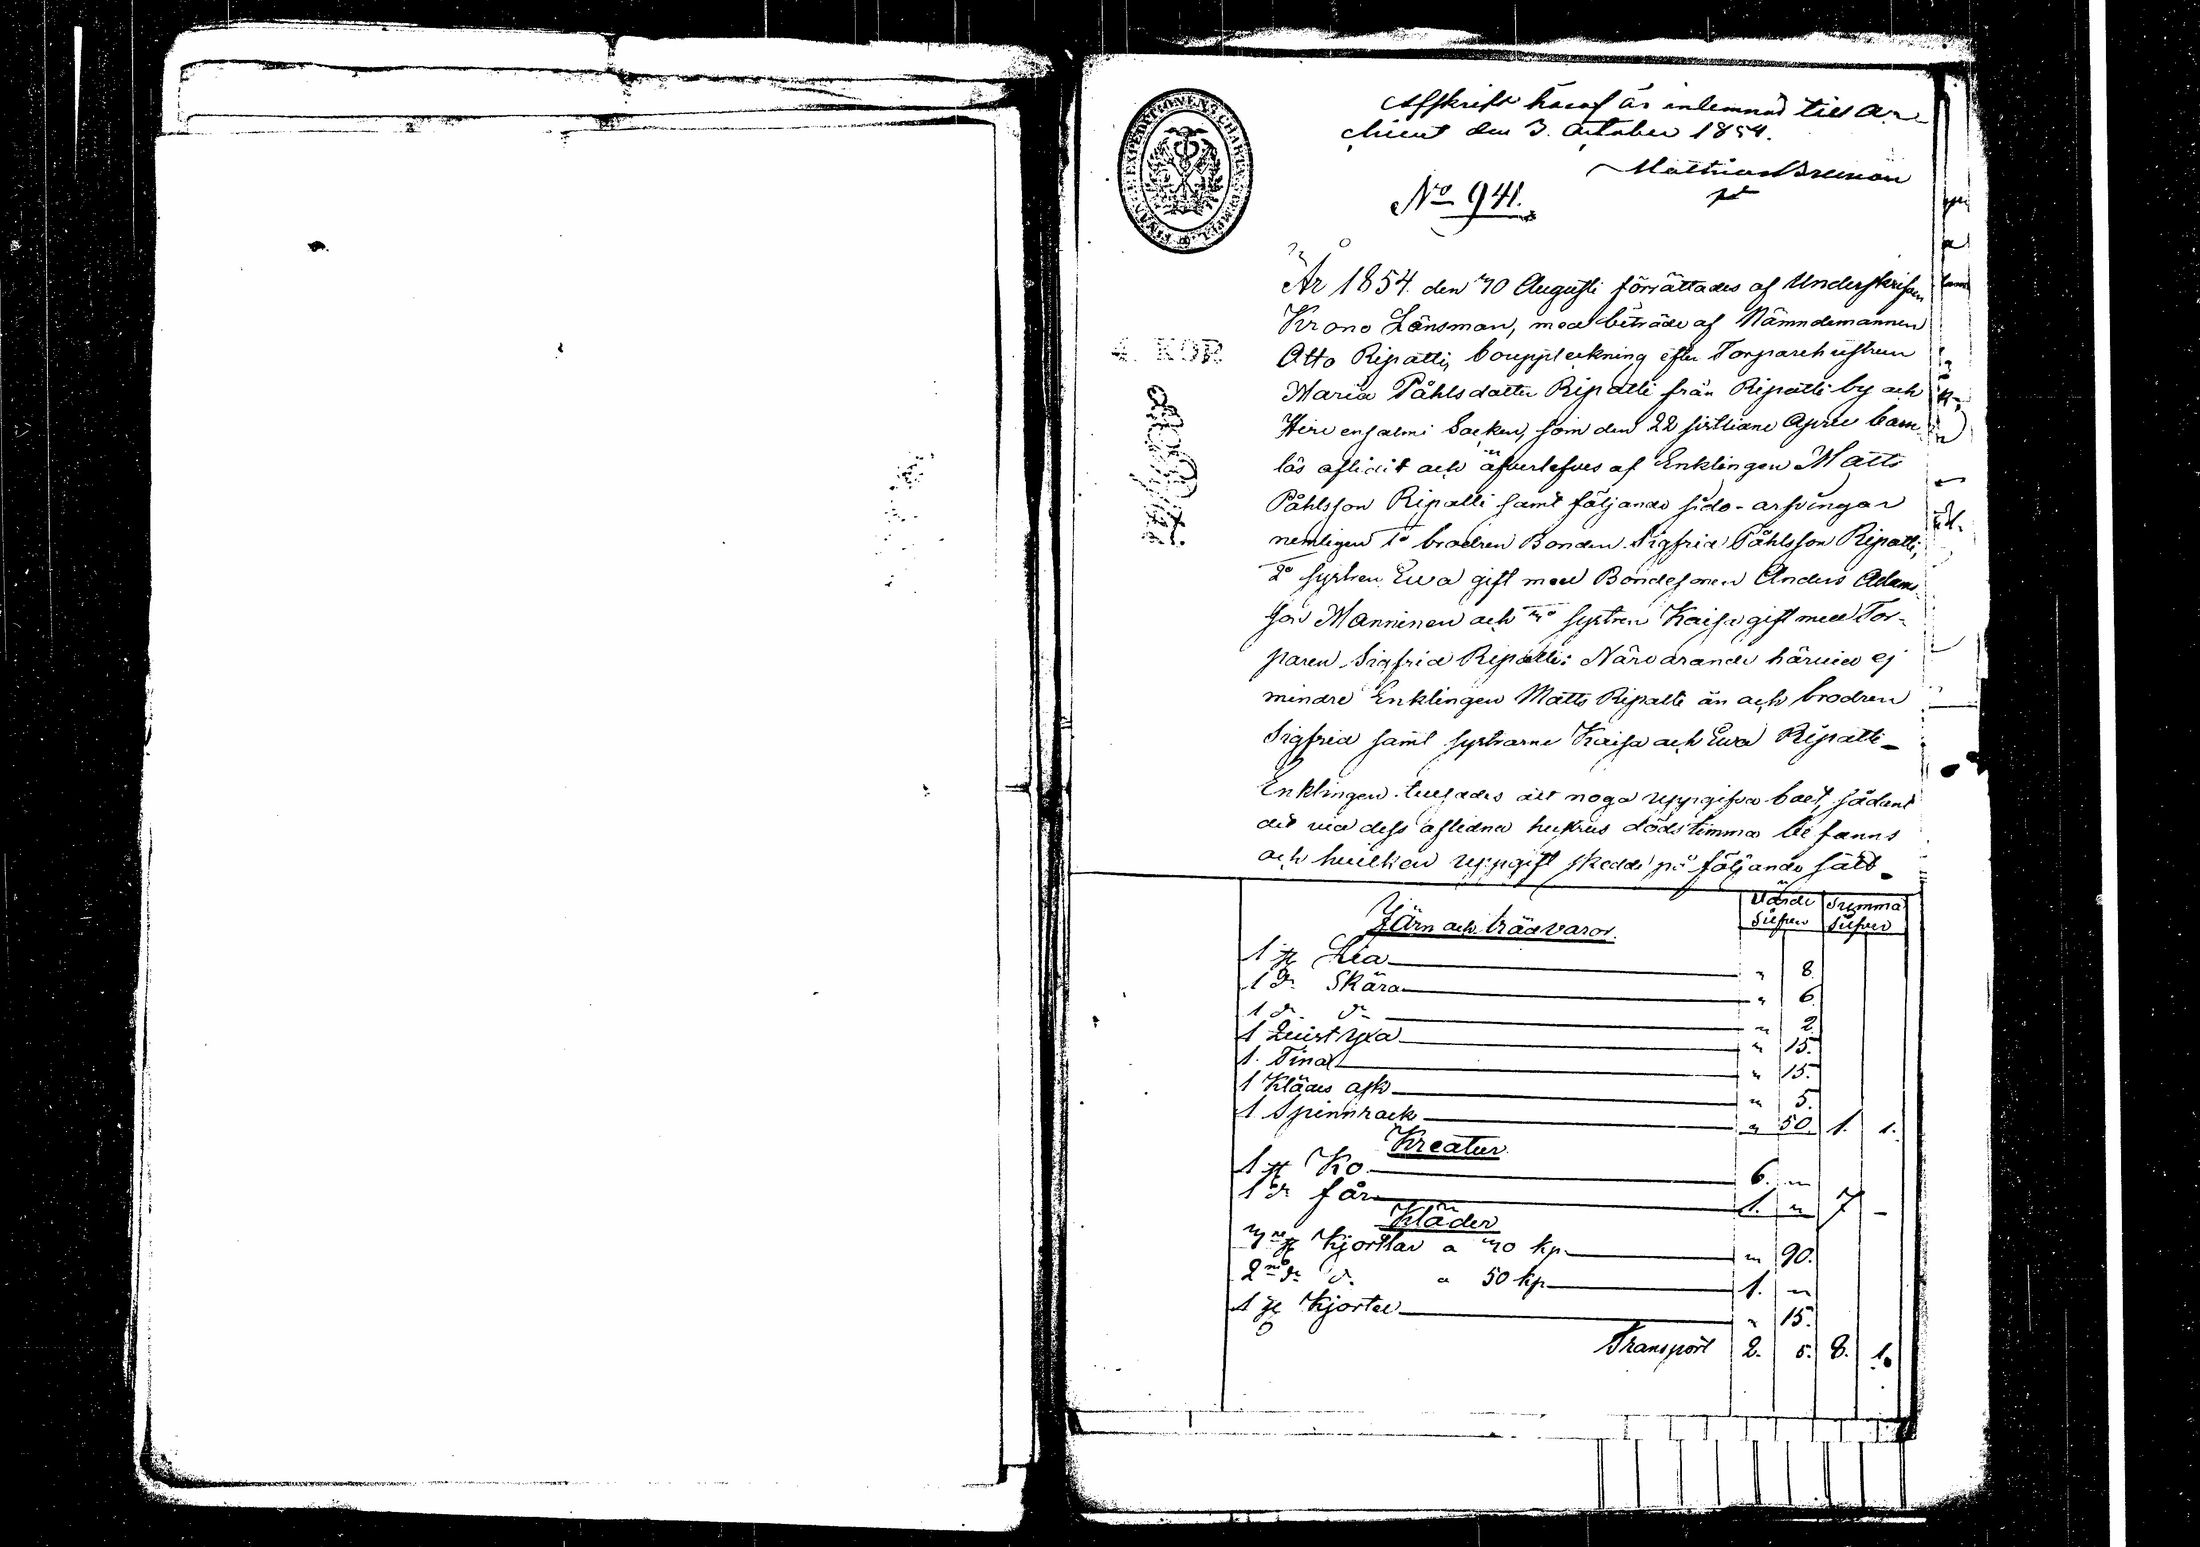 FINANCE EXPEDITIONENS CHARTÆ STÄMPEL
Afskrift häraf är inlemnad till Ar-
chivet den 3. October 1854.
No 941.
4 KOP
År 1854 den 30 Augusti förrättades af Underskrifven
Krono Länsman, med biträde af Nämndemannen
Otto Ripatti, bouppteckning efter Torparehustrun
Maria Påhlsdotter Ripatti från Ripatti by och
Hirvensalmi Socken, som den 22 sistlidne April barn-
lös aflidit och öfverlefves af Enklingen Matts
Påhlsson Ripatti samt följande sido-arfvingar
nemligen 1o brodren Bonden Sigfrid Påhlsson Ripatti,
2o systren Eva gift med Bondesonen Anders Adams-
son Manninen och 3o systren Kaisa gift med Tor-
paren Sigfrid Ripatti: Närvarande härvid ej
mindre Enklingen Matts Ripatti än och brodren
Sigfrid samt systrarne Kaisa och Eva Ripatti
Enklingen tillsades att noga uppgifva boet, sådant
det vid dess aflidna hustrus dödstimma befanns
och hvilken uppgift skedde på följande sätt
Värde Silfver Summa Silfver
Järn och trädvaror.
1 st Lia " 8.
1 do Skära " 6.
1 do do " 2.
1 yxa " 15.
1 Tina " 15.
1 Klädes ask " 5.
1 Spinnrack " 50. 1. 1.
Kreatur.
1 st Ko 6. "
1 do får 1. " 7 -
Kläder
3 ne st Kjortlar a 30 kp " 90.
2 ne do do a 50 kp 1. "
1 st Kjortel " 15.
Transport 2. 5. 8. 1.